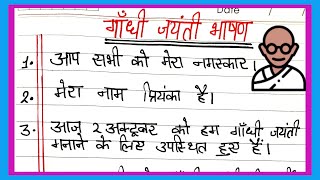 Date
गाँधी जयंती भाषण
1. आप सभी को मेरा नमस्कार।
2. मेरा नाम प्रियंका है।
3. आज 2 अक्टूबर को हम गाँधी जयंती
मनाने के लिए उपस्थित हुए हैं।